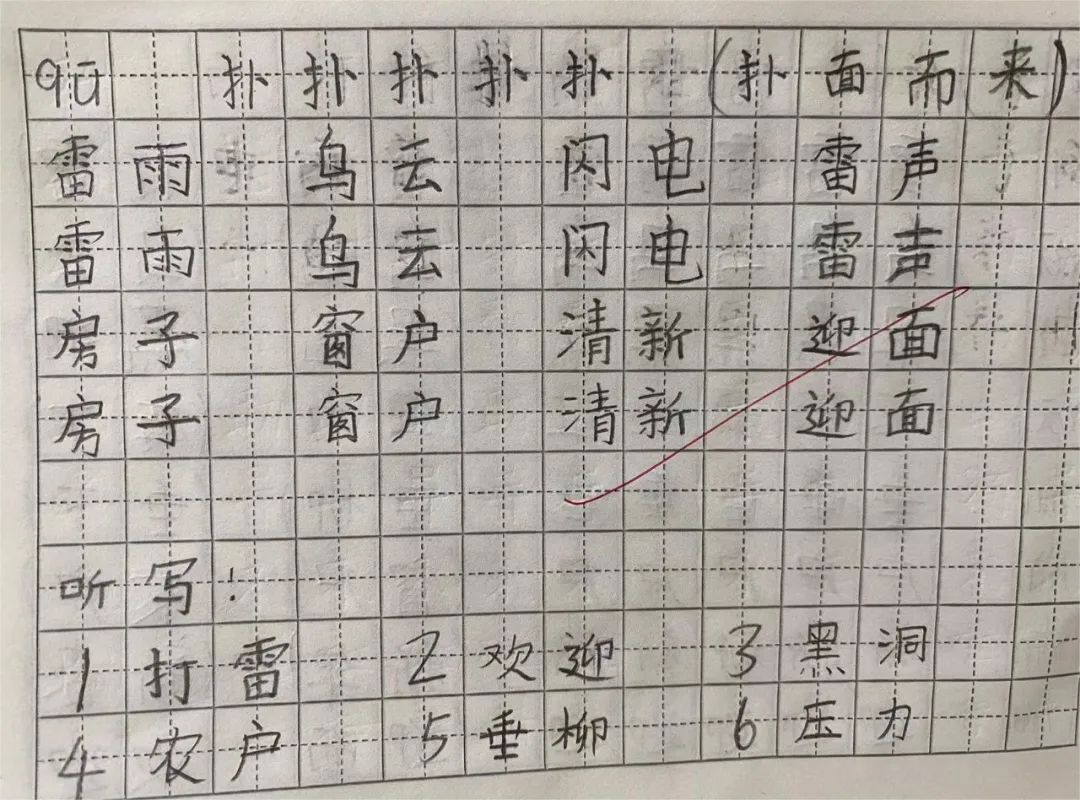 qū 扑 扑 扑 扑 扑 (扑面而来)
雷雨 乌云 闪电 雷声
雷雨 乌云 闪电 雷声
房子 窗户 清新 迎面
房子 窗户 清新 迎面
听写:
1 打雷 2 欢迎 3 黑洞
4 农户 5 垂柳 6 压力